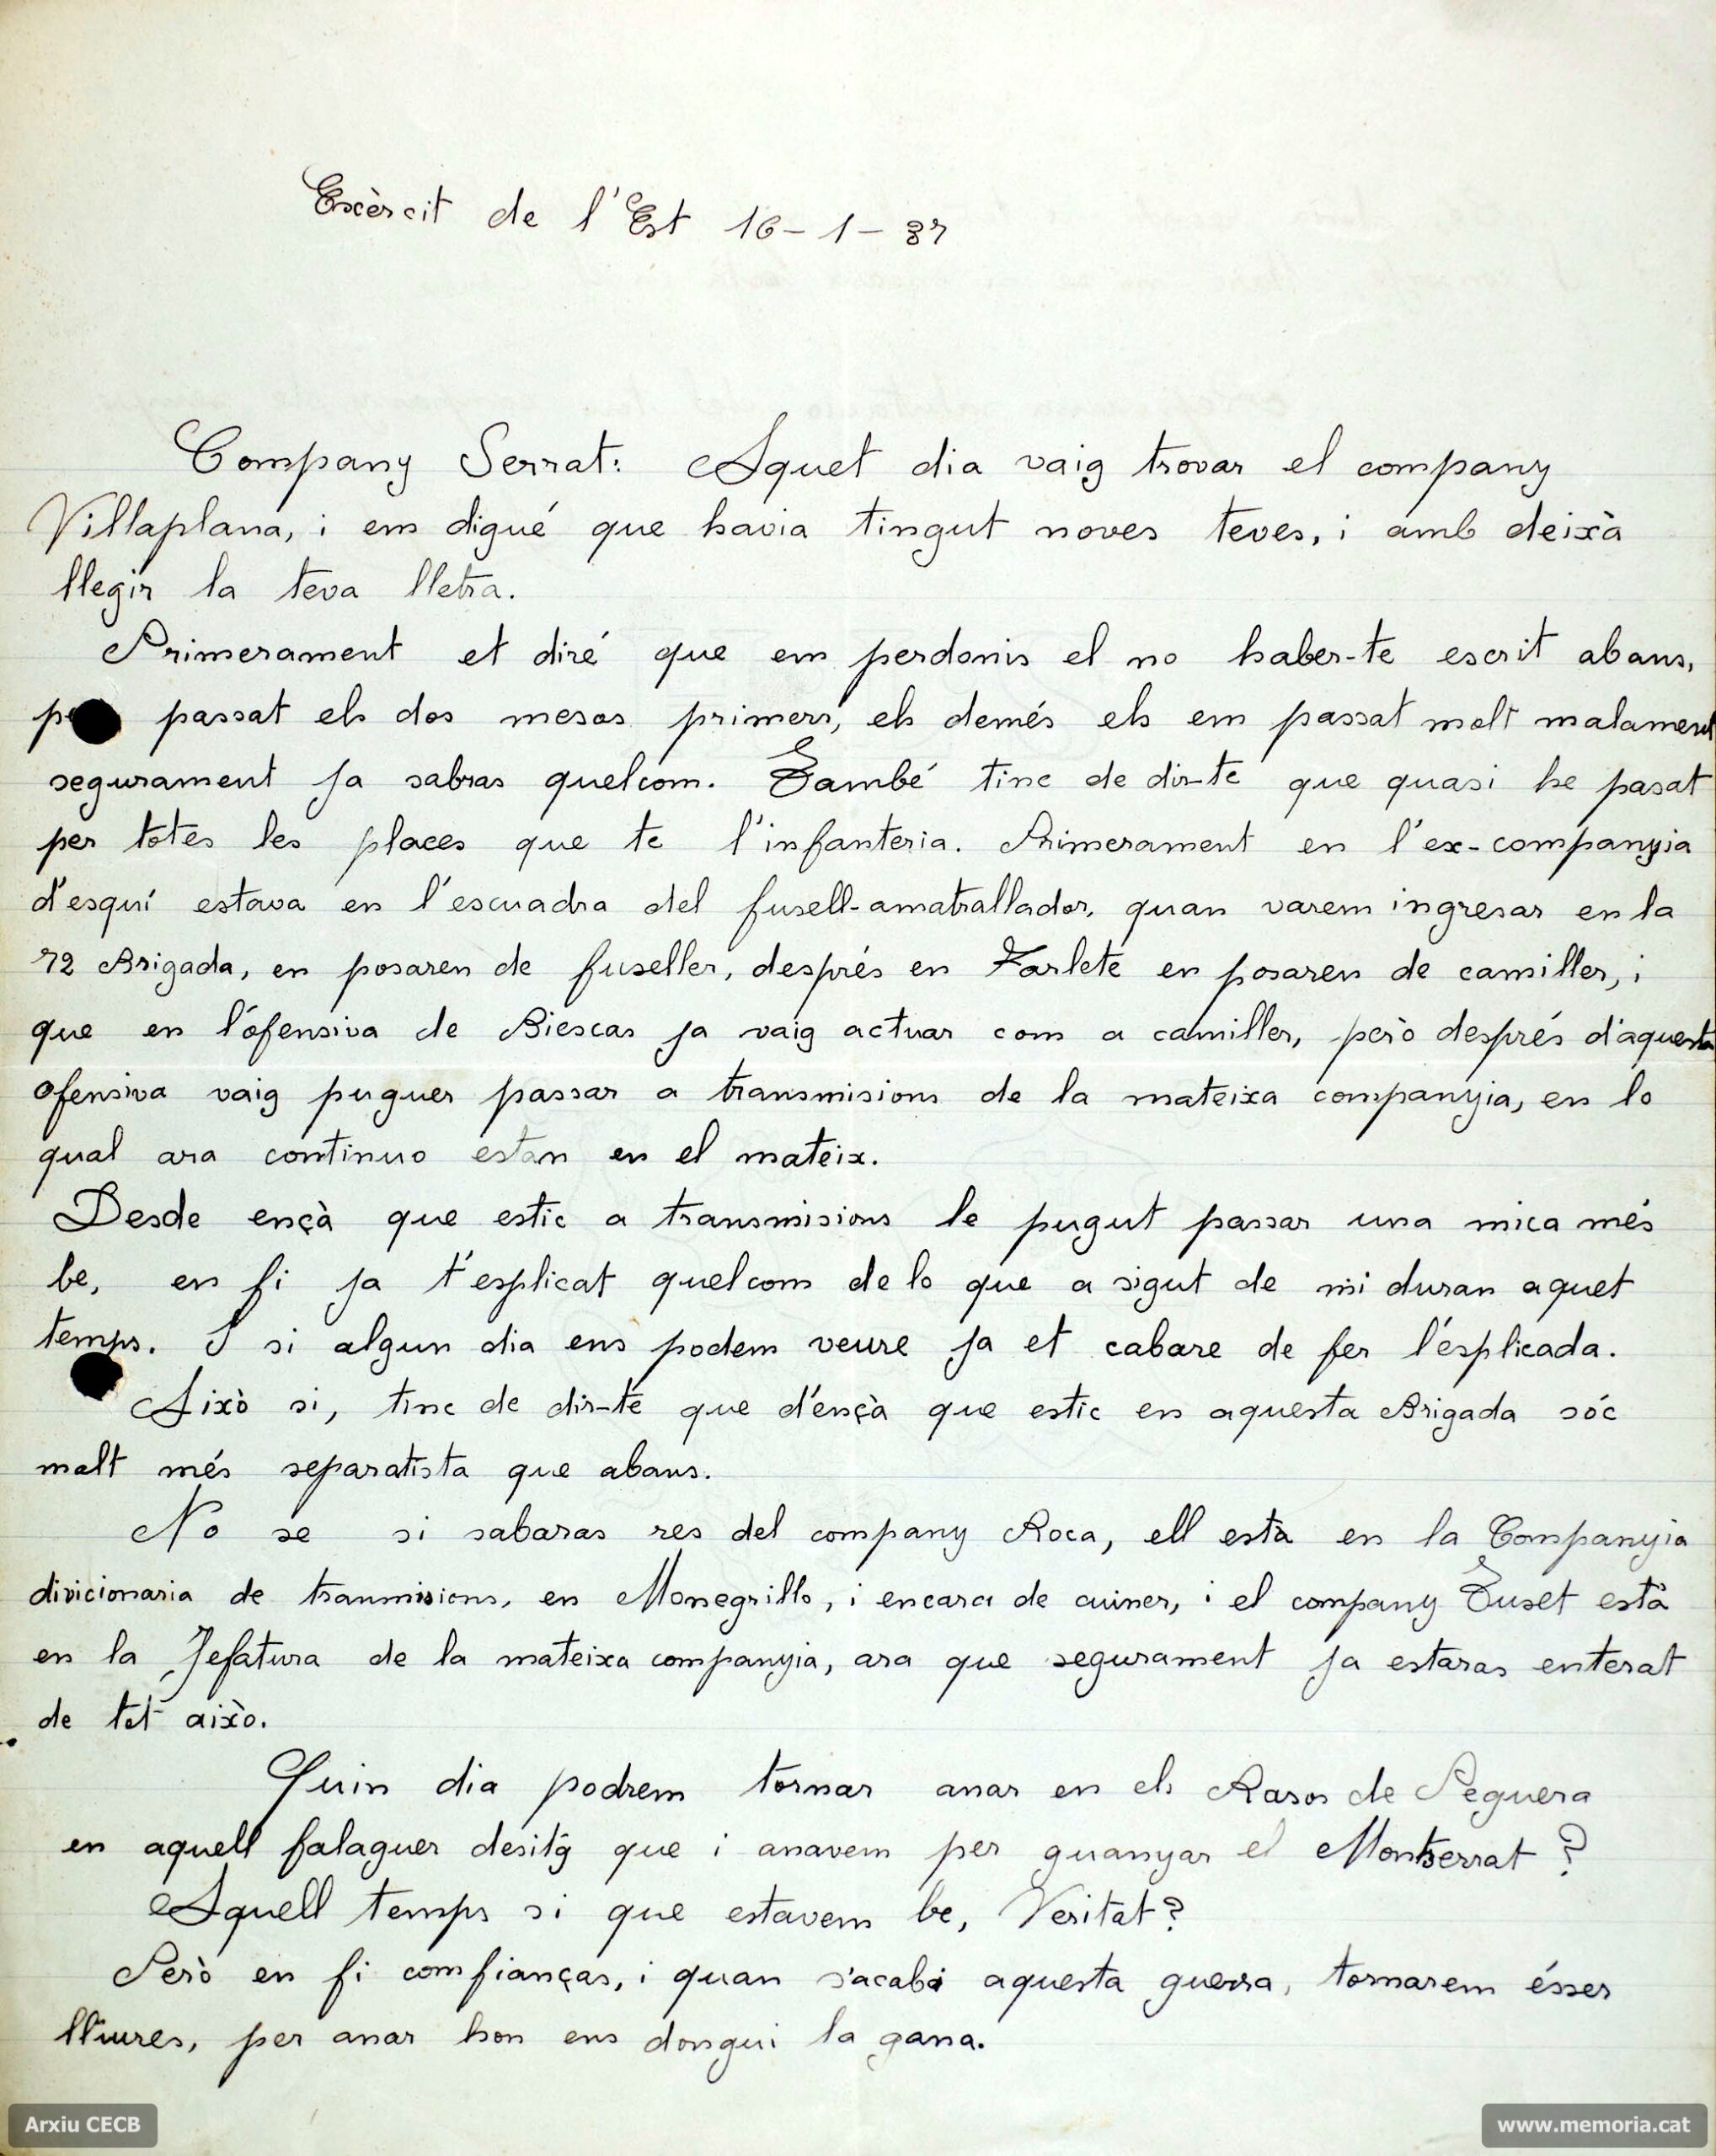 Exèrcit de l'Est 16-1-37
Company Serrat: Aquet dia vaig trovar el company
Villaplana, i em digué que havia tingut noves teves, i amb deixà
llegir la teva lletra.
Primerament et diré que em perdonis el no haber-te escrit abans,
passat els dos mesos primers, els demés els em passat molt malament
segurament ja sabras quelcom. També tinc de dir-te que quasi he pasat
per totes les places que te l'infanteria. Primerament en l'ex-companyia
d'esquí estava en l'escuadra del fusell-amatrallador, quan varem ingresar en la
72 Brigada, en posaren de fuseller, després en Farlete en posaren de camiller, i
que en l'ofensiva de Biescas ja vaig actuar com a camiller, però després d'aquesta
ofensiva vaig puguer passar a transmisions de la mateixa companyia, en lo
qual ara continuo estan en el mateix.
Desde ençà que estic a transmisions he pugut passar una mica més
be, en fi ja t'esplicat quelcom de lo que a sigut de mi duran aquet
temps. I si algun dia ens podem veure ja et cabare de fer l'esplicada.
Això si, tinc de dir-te que d'ençà que estic en aquesta Brigada sóc
molt més separatista que abans.
No se si sabaras res del company Roca, ell està en la Companyia
divicionaria de tranmisions, en Monegrillo, i encara de cuiner, i el company Tuset està
en la Jefatura de la mateixa companyia, ara que segurament ja estaras enterat
de tot això.
Quin dia podrem tornar anar en els Rasos de Peguera
en aquell falaguer desitg que i anavem per guanyar el Montserrat?
Aquell temps si que estavem be, Veritat?
Però en fi comfianças, i quan s'acabi aquesta guerra, tornarem ésser
lliures, per anar hon ens dongui la gana.
Arxiu CECB
www.memoria.cat